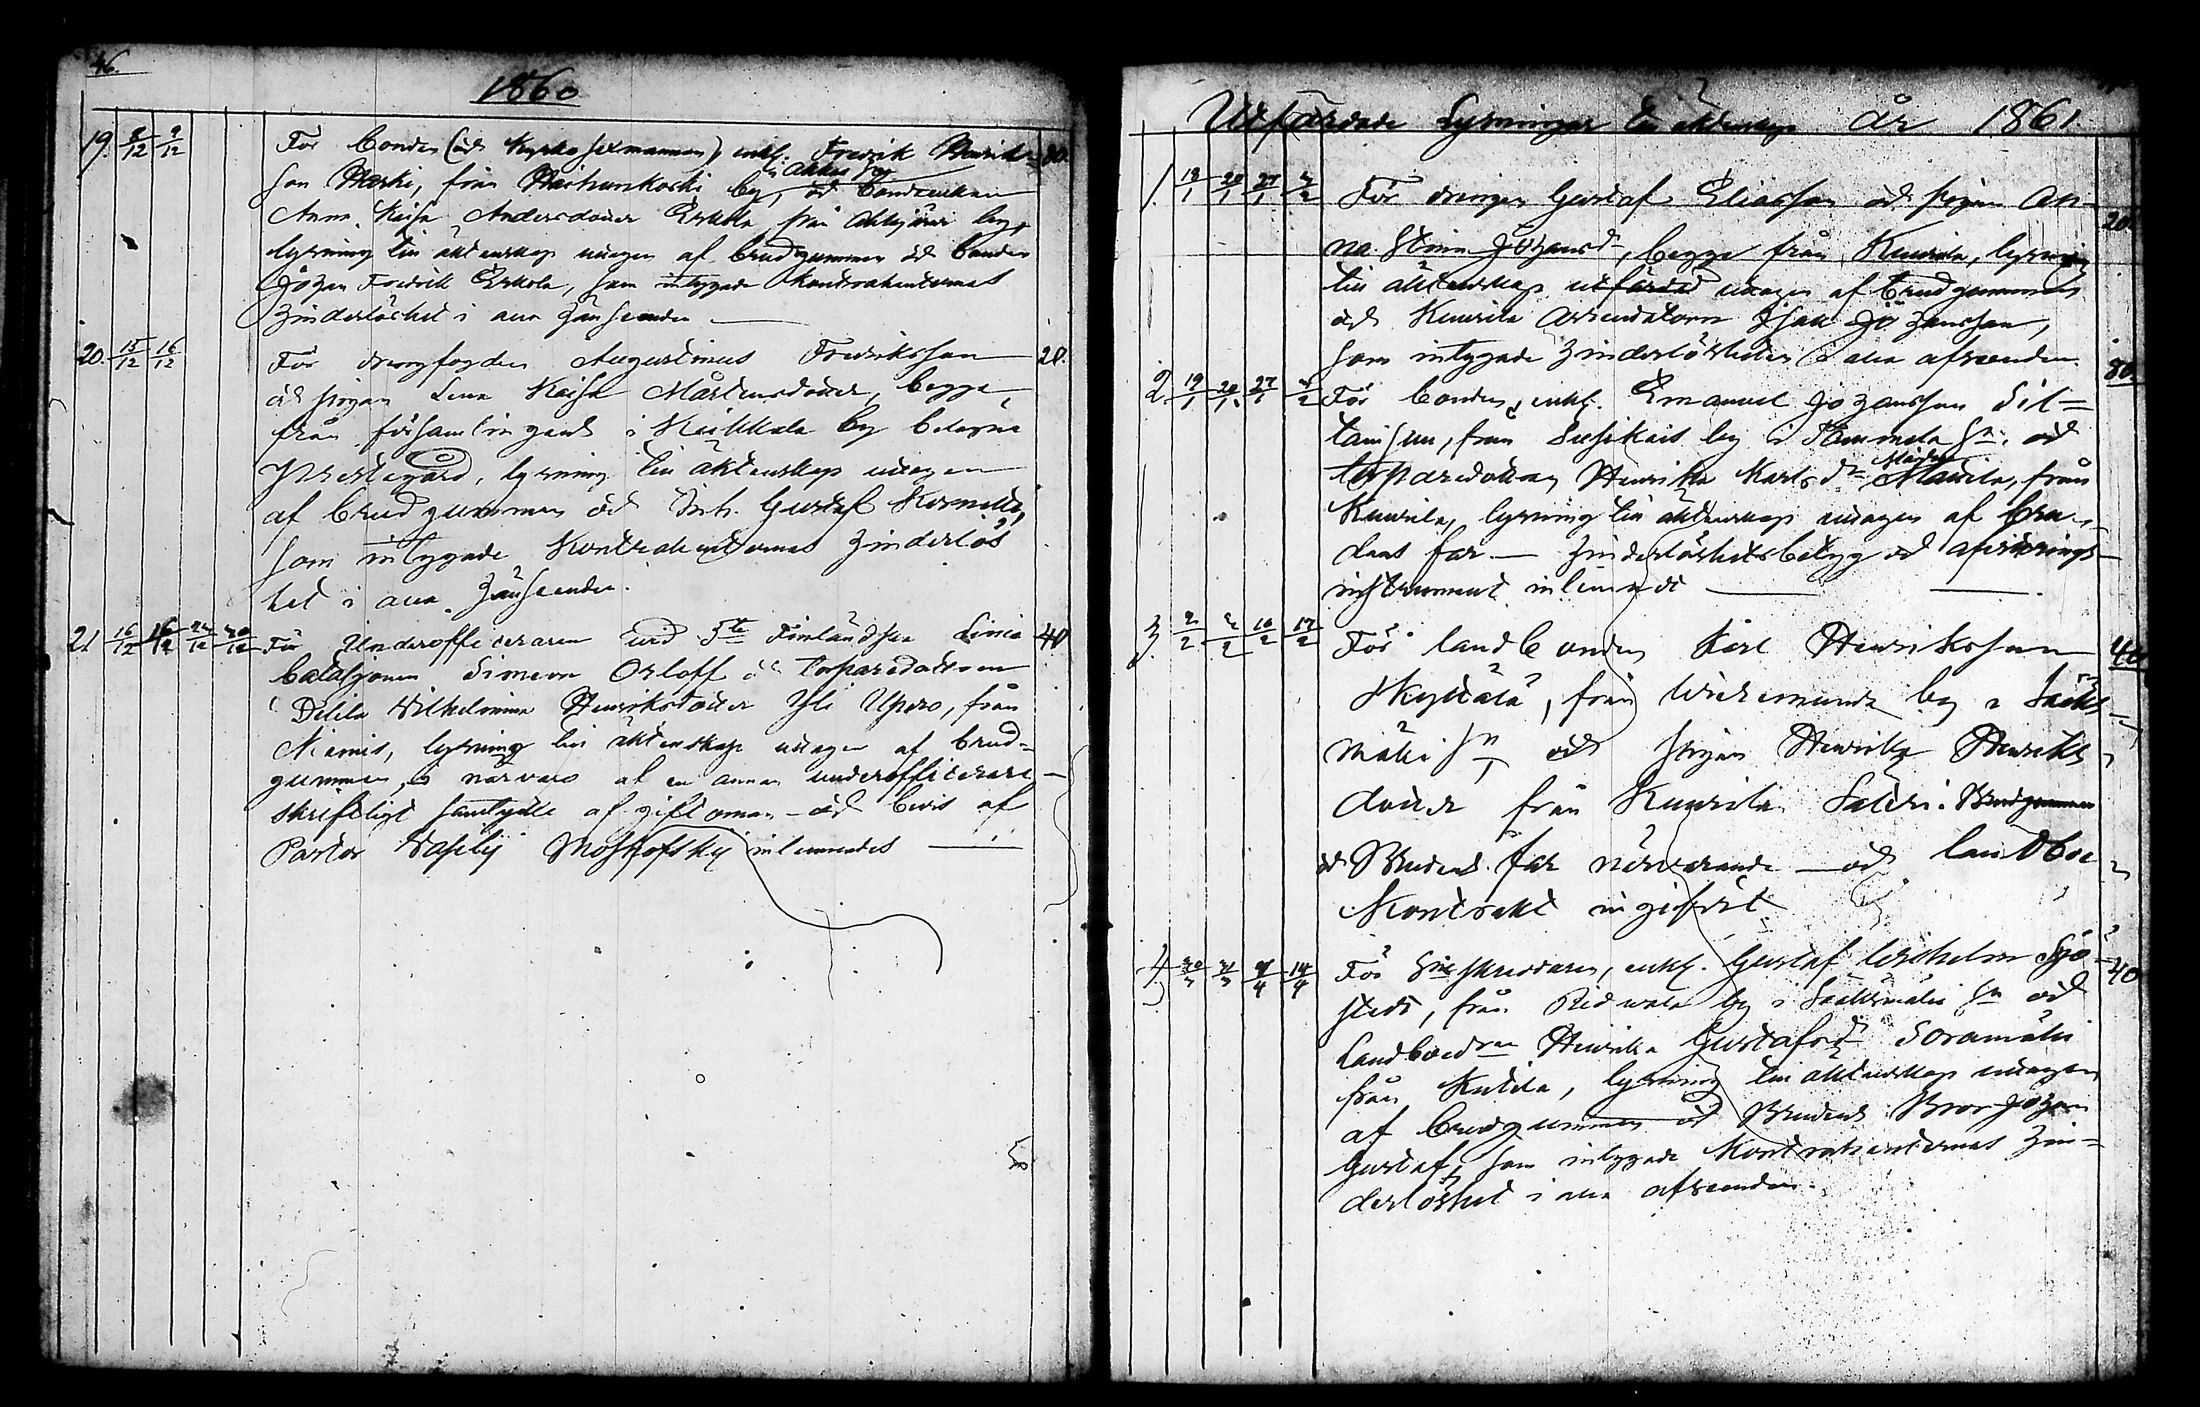 46.
1860
19. 8/12 9/12 För bonden (och Kyrko sexmannen) enkl. Fredrik Henrik= 80.
son Heski, från Hachunkoski by, och bondeenkan
Anna Kaisa Andersdotter Erkola från Ahtjärvi by,
lysning till äktenskap uttagen af brudgummen och bonden
Johan Fredrik Erkola, som intygade Kontrahenternas
hinderlöshet i alla hänseenden
20. 15/12 16/12 För drengfogden Augustinus Fredriksson 20.
och pigan Lena Kaisa Mårtensdotter, begge
från församlingens i Kaikkala by belägna
Prestegård, lysning till äktenskap uttagen
af brudgummen och Inh. Gustaf Kornell,
som intygade Kontrahenternas hinderlös
het i alla hänseenden.
21 16/12 16/12 23/12 30/12 För Underofficeraren vid 5te Finländska Linie 40
bataljonen Simeon Orloff och torparedottren
Delila Wilhelmina Henriksdotter Yli Upero, från
Niemis, lysning till äktenskap uttagen af brud=
gummen, i närvaro af en annan underofficerare —
skriftligt samtycke af giftoman och bevis af
Pastor Wasilij Moshofsky inlemnades
Utfärdade Lysningar till äktenskap år 1861.
1. 19/1 20/1 27/1 3/2 För drengen Gustaf Eliasson och pigan An- 20.
na Stina Johansd., begge från Kuurila, lysning
till äktenskap utfärdad uttagen af brudgummen
och Kuurila Arrendatorn Isak Johansson,
som intygade hinderlösheten i alla afseenden.
2. 19/1 20/1 27/1 3/2 För bonden, enkl. Emanuel Johansson Sil= 80.
tanisun, från Susikais by i Tammela Sn. och
torparedottren Henrika Karlsdr Mattila, från
Kuurila, lysning till äktenskap uttagen af bru-
dens far — hinderlöshetsbetyg och afvittrings-
instrument inlemnadt
3. 2/2 3/2 10/2 17/2 För landbonden Karl Henriksson 40
Skyttälä, från Wichemunk by i Sääks
mäki Sn och pigan Henrika Henriks
dotter från Kuurila Säteri. Brudgummen
och Brudens far närvarande — och landboe
Kontrakt ingifvit
4. 30/3 31/3 7/4 14/4 För Sn skräddaren, enkl. Gustaf Wilhelm Sjö 40
stedt, från Ridvala by i Sääksmäki Sn och
Landboedrn Henrika Gustafsdr Soramäki
från Kutila, lysning till äktenskap uttagen
af brudgummen och Brudens Bror Johan
Gustaf, som intygade Kontrahenternas hin=
derlöshet i alla afseenden.